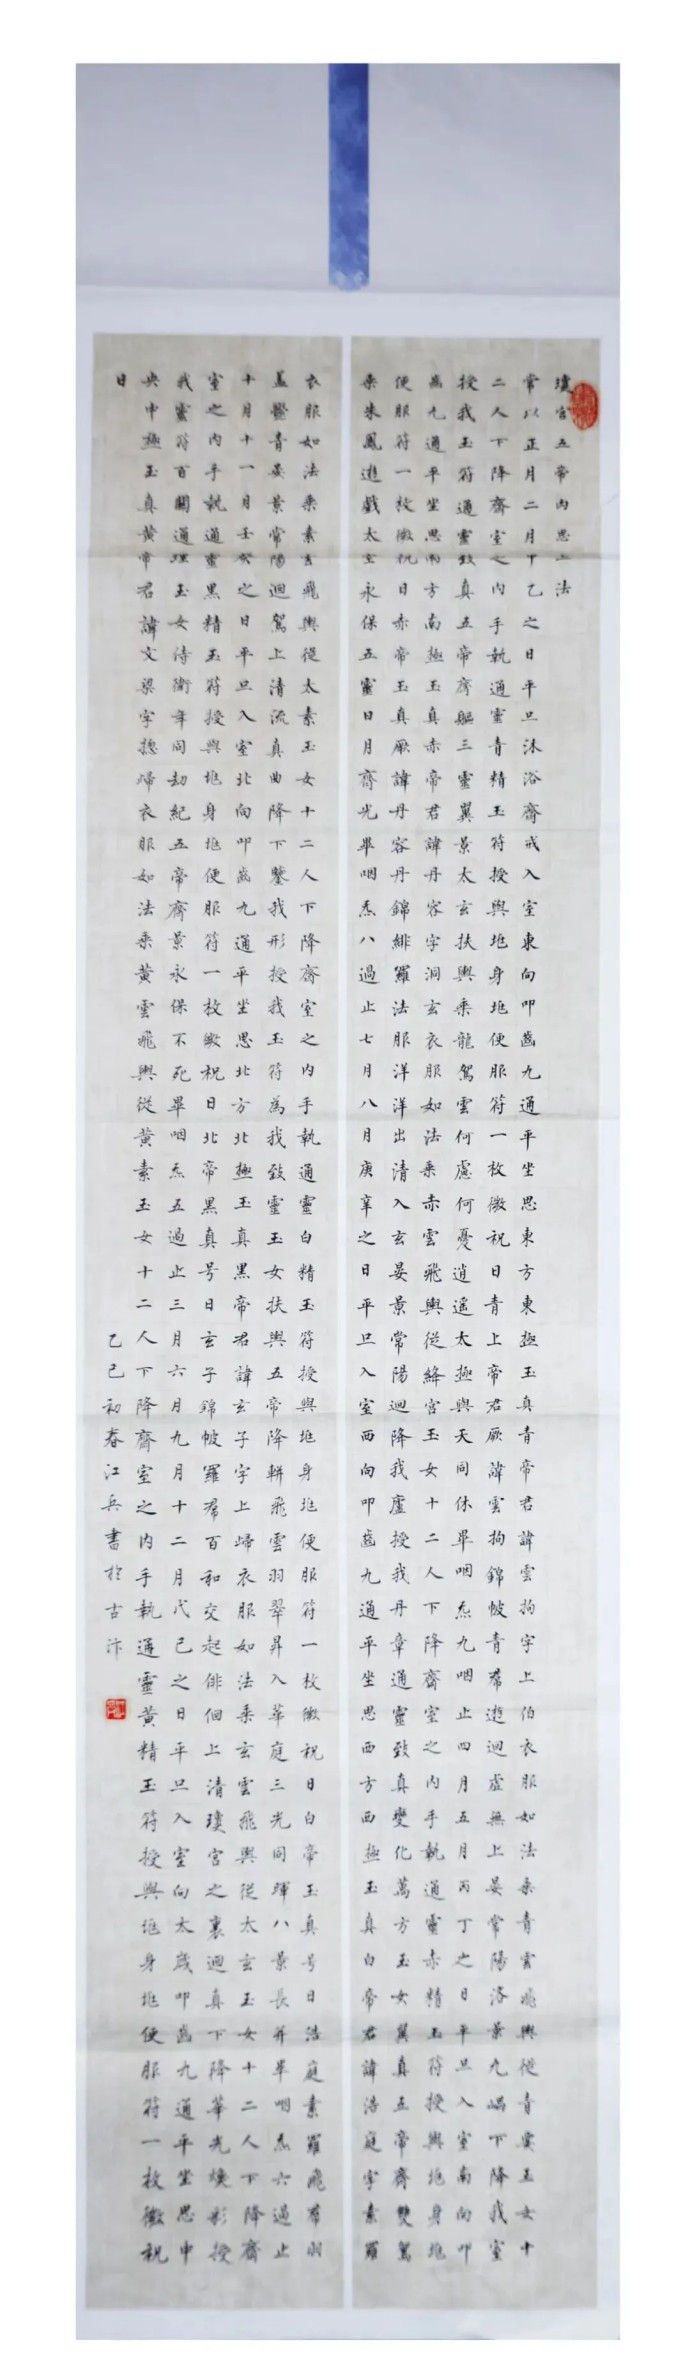 瓊宮五帝內思上法
常以正月二月甲乙之日平旦沐浴齋戒入室東向叩齒九通平坐思東方東極玉真青帝君諱雲拘字上伯衣服如法乘青雲飛輿從青要玉女十
二人下降齋室之內手執通靈青精玉符授與地身地便服符一枚微祝曰青上帝君厥諱雲拘錦帔青帬遊迴虛無上晏常陽洛景九嵎下降我室
授我玉符通靈致真五帝齊軀三靈翼景太玄扶輿乘龍駕雲何慮何憂逍遙太極與天同休畢咽炁九咽止四月五月丙丁之日平旦入室南向叩
齒九通平坐思南方南極玉真赤帝君諱丹容字洞玄衣服如法乘赤雲飛輿從絳宮玉女十二人下降齋室之內手執通靈赤精玉符授與地身地
便服符一枚微祝曰赤帝玉真厥諱丹容丹錦緋羅法服洋洋出清入玄晏景常陽迴降我廬授我丹章通靈致真變化萬方玉女翼真五帝齊雙駕
乘朱鳳遊戲太空永保五靈日月齊光畢咽炁八過止七月八月庚辛之日平旦入室西向叩齒九通平坐思西方西極玉真白帝君諱浩庭字素羅
衣服如法乘素雲飛輿從太素玉女十二人下降齋室之內手執通靈白精玉符授與地身地便服符一枚微祝曰白帝玉真号曰浩庭素羅飛帬羽
蓋鬱青晏景常陽迴駕上清流真曲降下鑒我形授我玉符為我致靈玉女扶輿五帝降軿飛雲羽翠昇入華庭三光同暉八景長并畢咽炁六過止
十月十一月壬癸之日平旦入室北向叩齒九通平坐思北方北極玉真黑帝君諱玄子字上歸衣服如法乘玄雲飛輿從太玄玉女十二人下降齋
室之內手執通靈黑精玉符授與地身地便服符一枚微祝曰北帝黑真号曰玄子錦帔羅帬百和交起俳佪上清瓊宮之裏迴真下降華光煥彩授
我靈符百關通理玉女侍衛年同劫紀五帝齊景永保不死畢咽炁五過止三月六月九月十二月戊己之日平旦入室向太歲叩齒九通平坐思中
央中極玉真黃帝君諱文梁字揔歸衣服如法乘黃雲飛輿從黃素玉女十二人下降齋室之內手執通靈黃精玉符授與地身地便服符一枚微祝
曰
乙巳初春江兵書於古汴